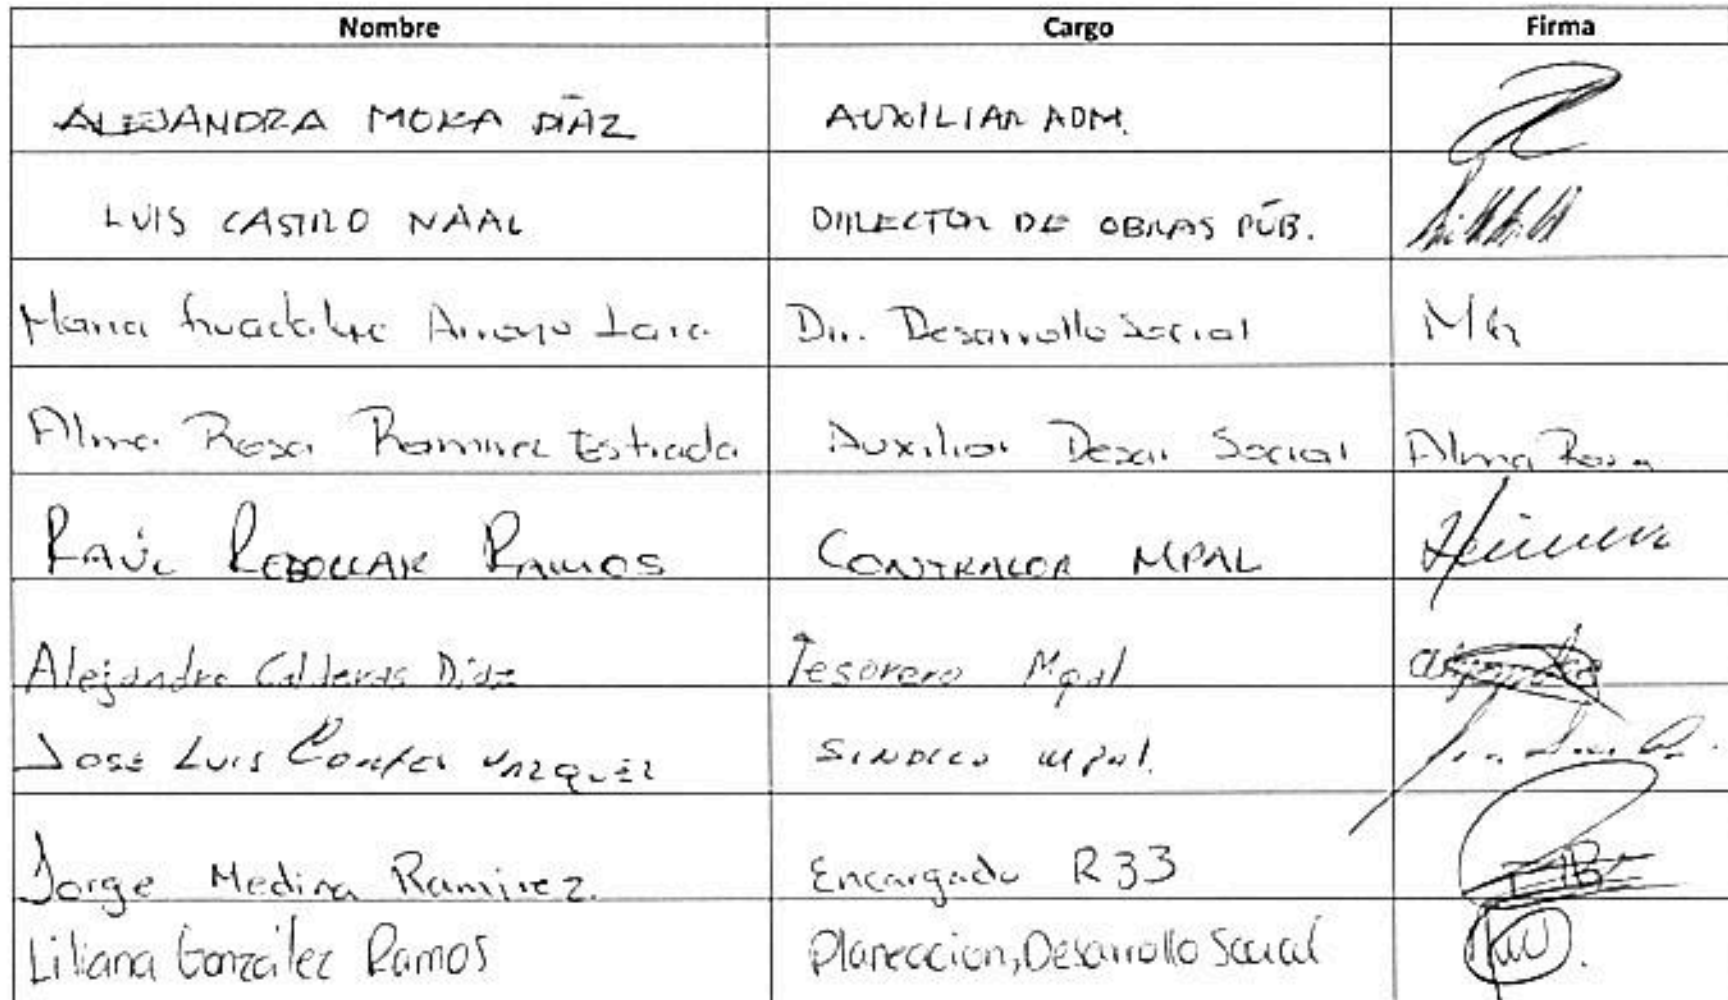 Nombre Cargo Firma
ALEJANDRA MORA DÍAZ AUXILIAR ADM.
LUIS CASTILO NAAL DIRECTOR DE OBRAS PÚB.
Maria Guadalupe Arroyo Lara Dir. Desarrollo Social MG
Alma Rosa Ramirez Estrada Auxiliar Desar Social Alma Rosa
RAÚL REBOLLAR RAMOS CONTRALOR MPAL
Alejandro Calderas Diaz Tesorero Mpal
JOSE LUIS VAZQUEZ SINDICO MPAL.
Jorge Medina Ramirez. Encargado R33
Liliana González Ramos Planeacion, Desarrollo Social